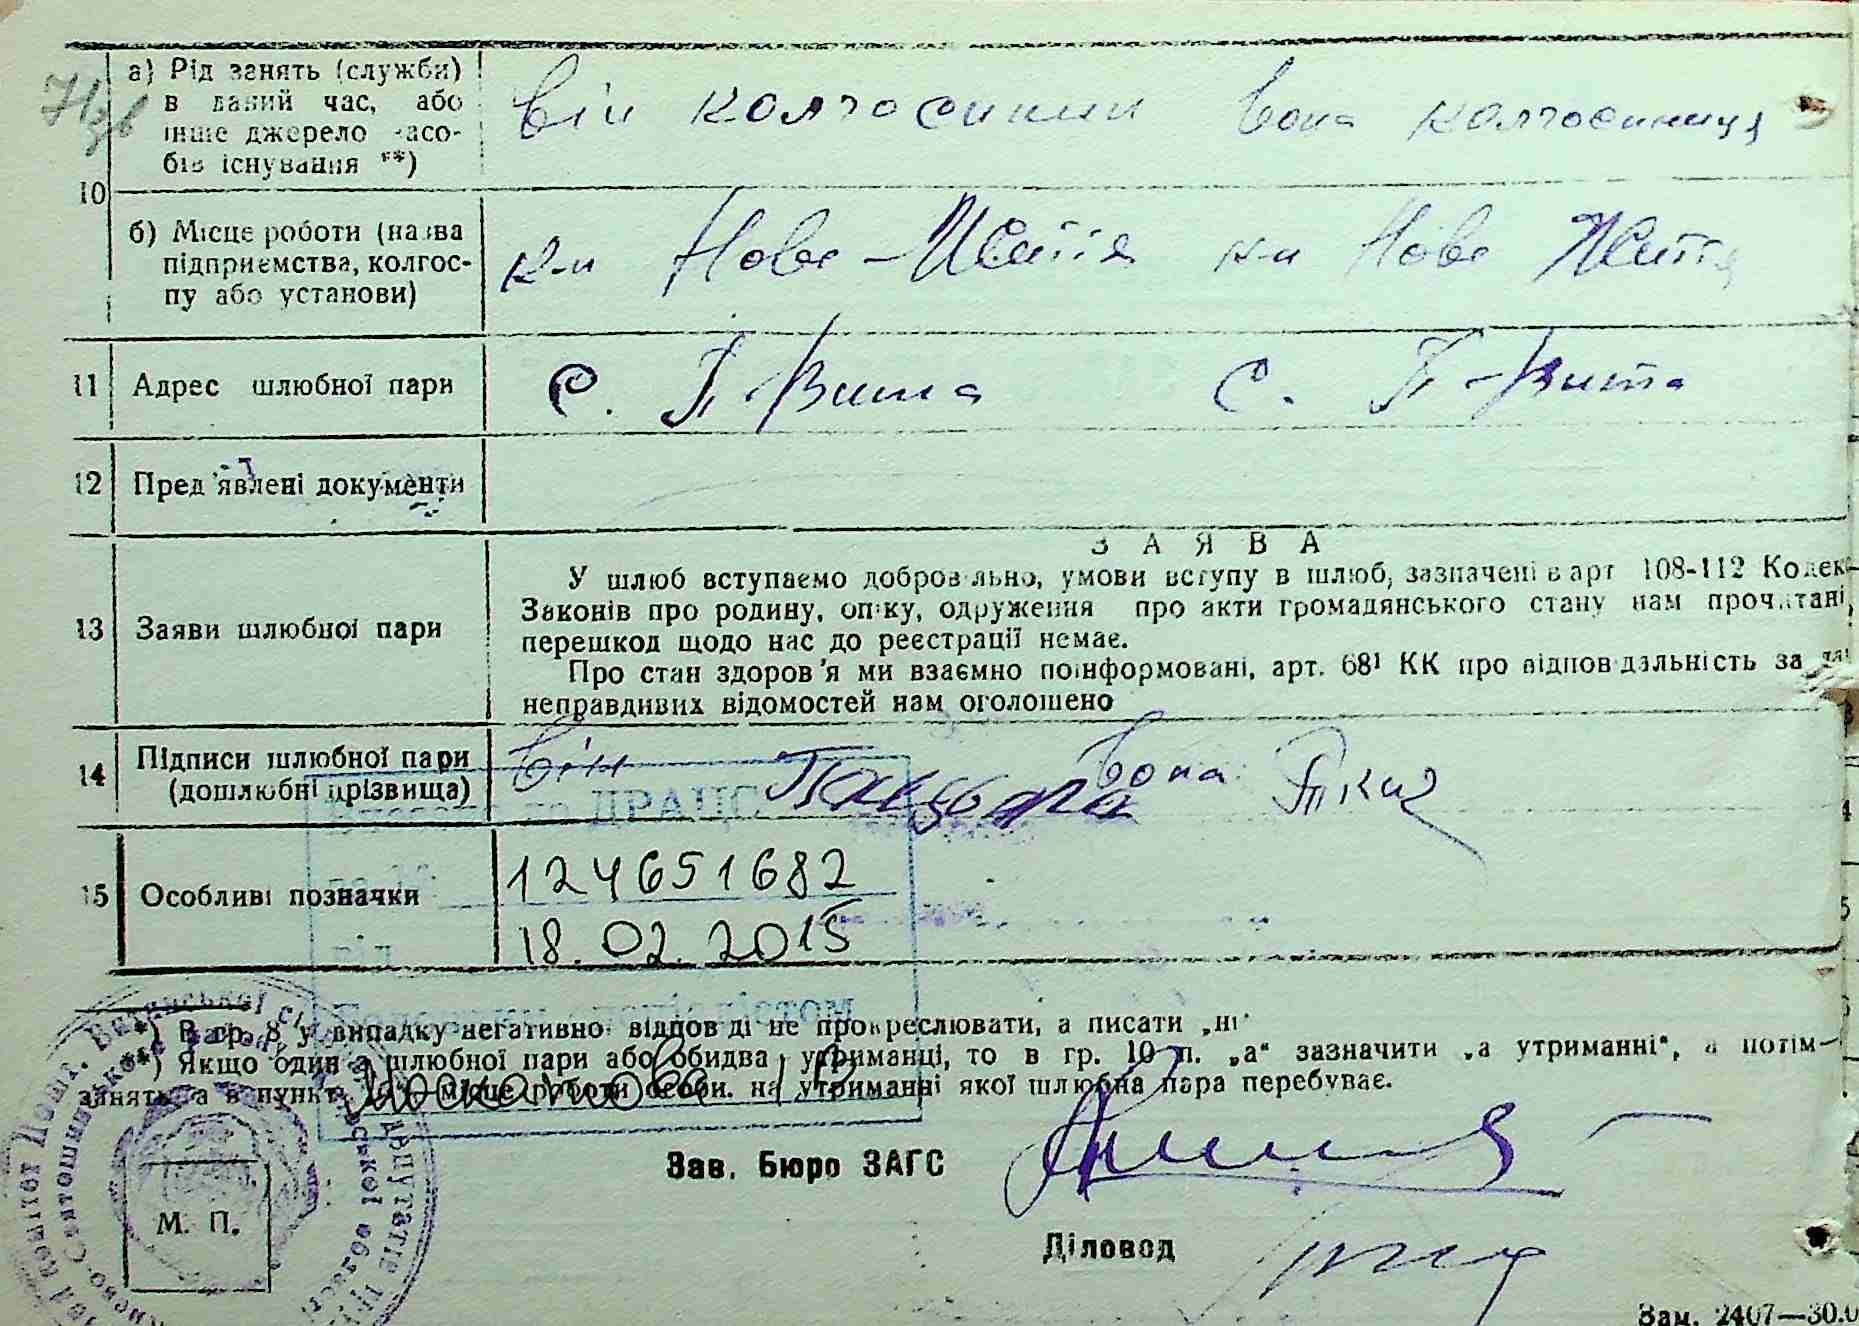 а) Рід занять (служби) Він колгоспник Вона колгоспниця
в даний час, або
інше джерело засо-
бів існування **)
10
б) Місце роботи (назва к-п Нове-Життя к-п Нове Життя
підприємства, колгос-
пу або установи)
11 Адрес шлюбної пари с. П-Вита с. П-Вита
12 Пред'явлені документи
ЗАЯВА
У шлюб вступаємо добровільно, умови вступу в шлюб, зазначені в арт 108-112 Кодек-
Законів про родину, опіку, одруження про акти громадянського стану нам прочитані,
13 Заяви шлюбної пари перешкод щодо нас до реєстрації немає.
Про стан здоров'я ми взаємно поінформовані, арт. 68¹ КК про відповідальність за
неправдивих відомостей нам оголошено
14 Підписи шлюбної пари Він Вона
(дошлюбні прізвища)
ДРАЦС
15 Особливі позначки 124651682
від 18.02.2015
*) В гр. 8 у випадку негативної відповіді не прокреслювати, а писати „ні"
**) Якщо один з шлюбної пари або обидва утриманці, то в гр. 10 п. „а" зазначити „а утриманні", а потім
занять, а в пункті місце роботи особи. на утриманні якої шлюбна пара перебуває.
Зав. Бюро ЗАГС
М. П.
Діловод
Зам. 2407—30.